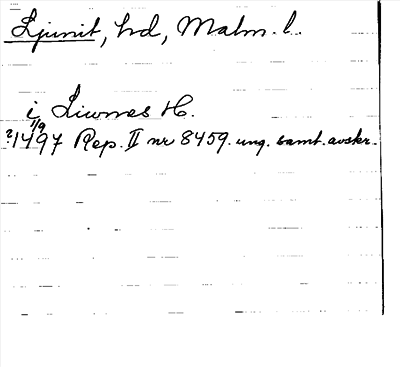 Ljunit, hd, Malm. l.
i Liwnes H.
?1497 1/9 Rep. II nr 8459. ung. samt. avskr.